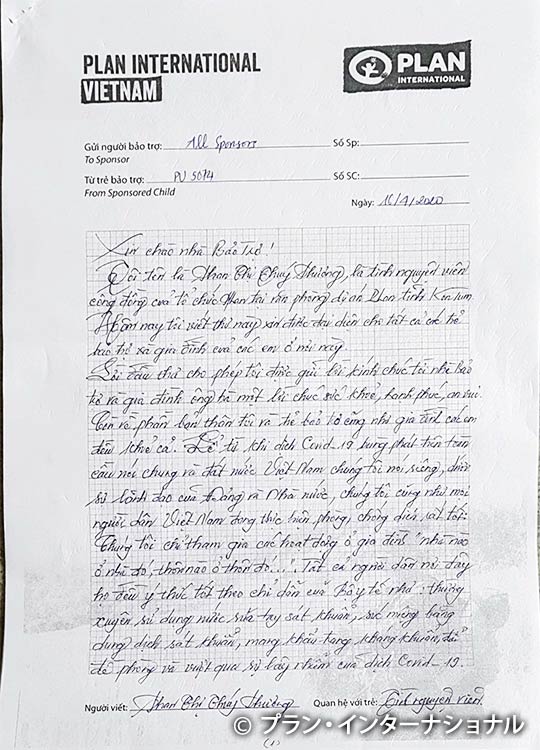 PLAN INTERNATIONAL
VIETNAM
PLAN
INTERNATIONAL
Gửi người bảo trợ: All Sponsors Số Sp:
To Sponsor
Từ trẻ bảo trợ: PU 5074 Số SC:
From Sponsored Child
Ngày: 16/4/2020
Xin chào nhà Bảo Trợ!
Tôi tên là Phan Thị Thuý Thường, là tình nguyện viên
cộng đồng của tổ chức Plan tại văn phòng dự án Plan tỉnh Kon Tum.
Hôm nay tôi viết thư này xin được đại diện cho tất cả các trẻ
bảo trợ và gia đình của các em ở nơi này.
Lời đầu thư cho phép tôi được gửi lời kính chúc tới nhà Bảo
trợ và gia đình ông bà một lời chúc sức khoẻ, hạnh phúc, an vui.
Còn về phần bản thân tôi và trẻ bảo trợ cũng như gia đình các em
đều khoẻ cả. Kể từ khi dịch Covid-19 bùng phát trên toàn
cầu nói chung và đất nước Việt Nam chúng tôi nói riêng, dưới
sự lãnh đạo của Đảng và Nhà nước, chúng tôi cũng như mọi
người dân Việt Nam đang thực hiện phòng, chống dịch rất tốt.
Chúng tôi chỉ tham gia các hoạt động ở gia đình "nhà nào
ở nhà đó, thôn nào ở thôn đó...". Tất cả người dân nơi đây
họ đều ý thức tốt theo chỉ dẫn của Bộ y tế như: thường
xuyên sử dụng nước rửa tay sát khuẩn, súc miệng bằng
dung dịch sát khuẩn, mang khẩu trang kháng khuẩn, để
đề phòng và vượt qua sự lây nhiễm của dịch Covid-19.
Người viết: Phan Thị Thuý Thường Quan hệ với trẻ: Tình nguyện viên
(1)
© プラン・インターナショナル